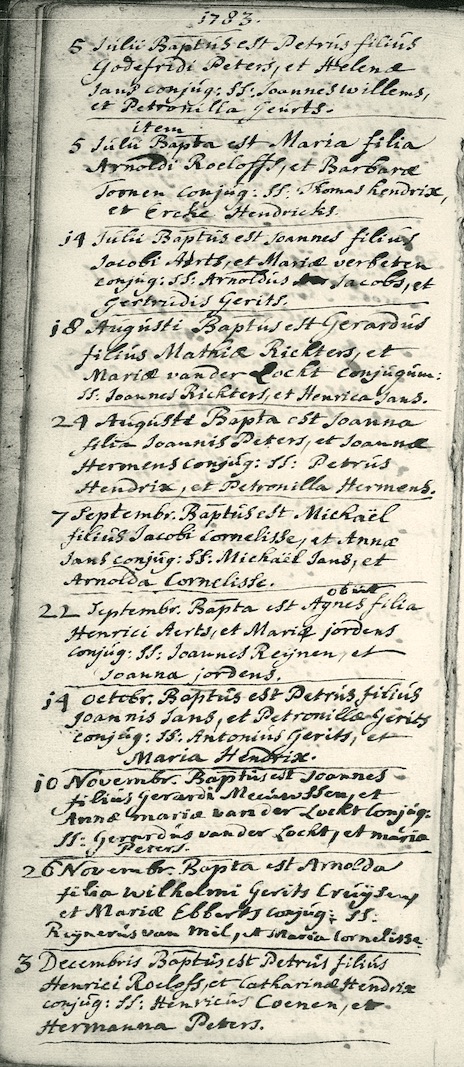 1783.
5 Julii Baptus est Petrus filius
Godefridi Peters, et Helenæ
Jans conjug: SS: Joannes Willems,
et Petronilla Geurts.
item
5 Julii Bapta est Maria filia
Arnoldi Roeloffs, et Barbaræ
Toonen conjug: SS: Thomas hendrix,
et Ercke Hendricks.
14 Julii Baptus est Joannes filius
Jacobi Aerts, et Mariæ verbeten
conjug: SS: Arnoldus Jacobs, et
Gertrudis Gerits.
18 Augusti Baptus est Gerardus
filius Mathiæ Richters, et
Mariæ vander Lockt conjugum:
SS: Joannes Richters, et Henrica Jans.
24 Augusti Bapta est Joanna
filia Joannis Peters, et Joannæ
Hermens conjug: SS: Petrus
Hendrix, et Petronilla Hermens.
7 Septembr. Baptus est Michaël
filius Jacobi Cornelisse, et Annæ
Jans conjug: SS: Michaël Jans, et
Arnolda Cornelisse.
obiit
22 Septembr. Bapta est Agnes filia
Henrici Aerts, et Mariæ jordens
conjug: SS: Joannes Reijnen, et
Joanna jordens.
14 Octobr. Baptus est Petrus filius
Joannis Jans, et Petronillæ Gerits
conjug: SS: Antonius Gerits, et
Maria Hendrix.
10 Novembr. Baptus est Joannes
filius Gerardi Meeuwssen, et
Annæ mariæ van der Lockt Conjug:
SS: Gerardus vander Lockt, et maria
Peters.
26 Novembr. Bapta est Arnolda
filia Wilhelmi Gerits Creijsen,
et Mariæ Ebberts conjug: SS:
Reijnerus van Mil, et Maria Cornelisse
3 Decembris Baptus est Petrus filius
Henrici Roeloffs, et Catharinæ Hendrix
conjug: SS: Henricus Coenen, et
Hermanna Peters.